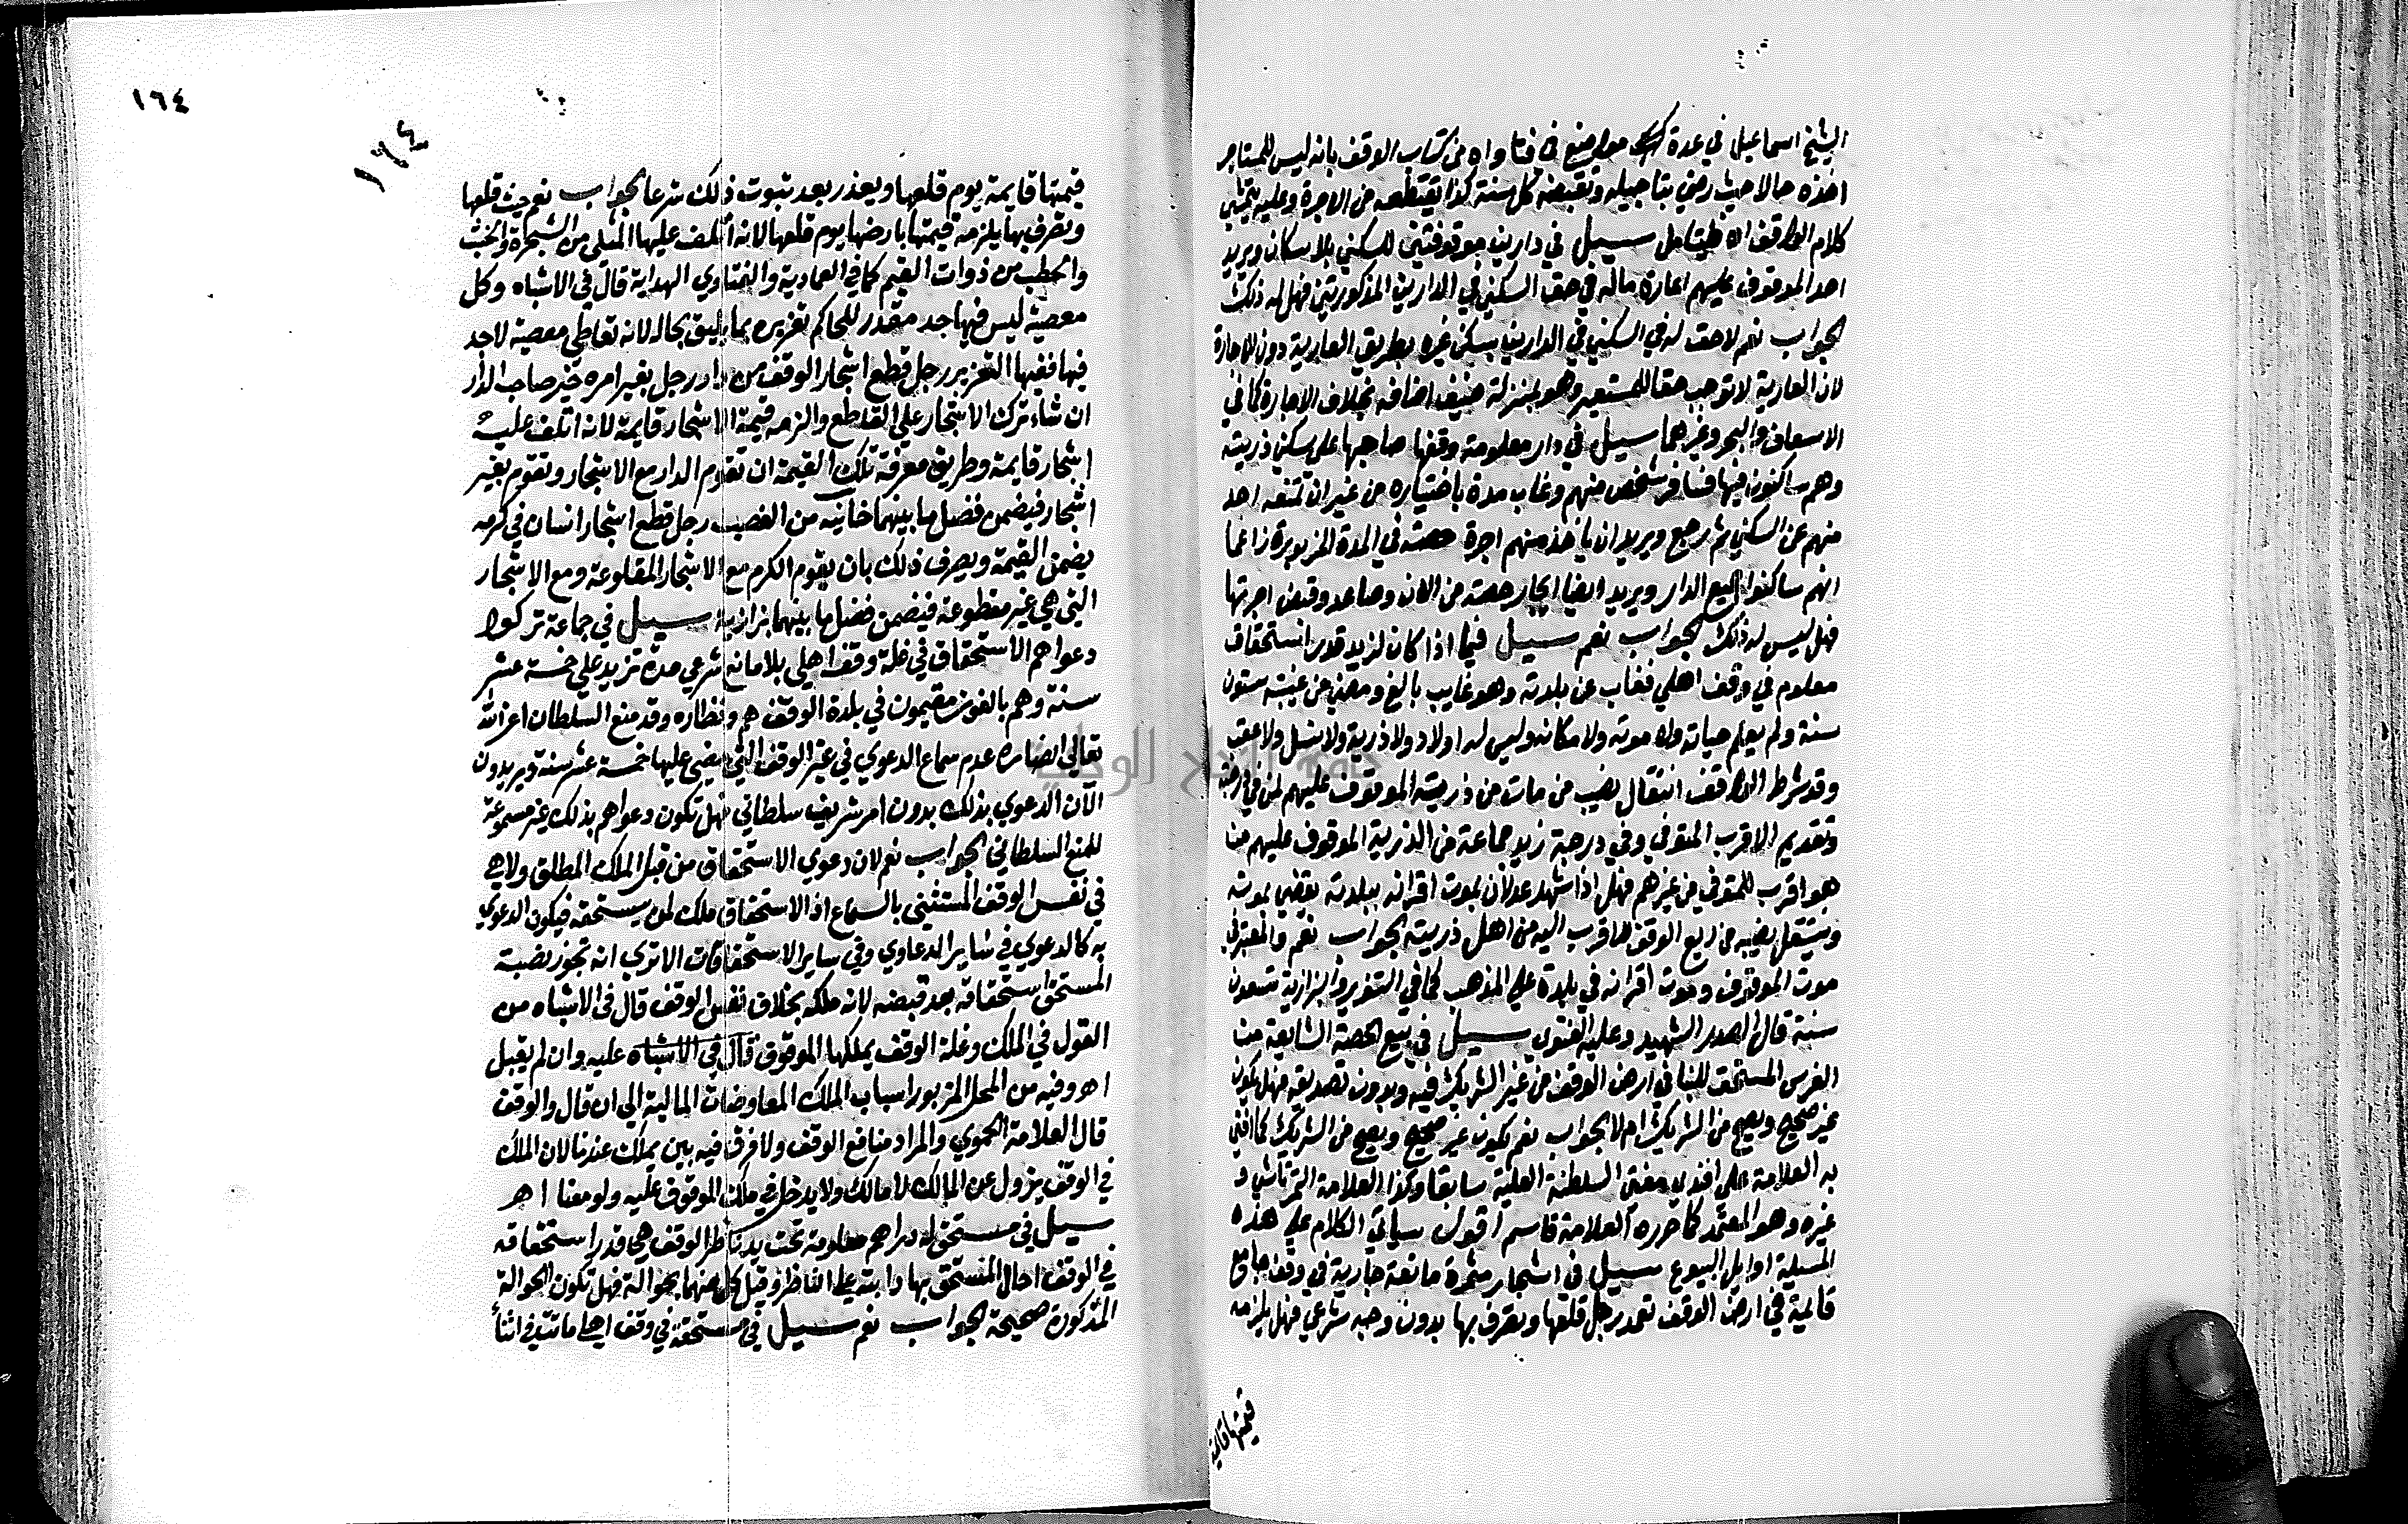 الشيخ اسماعيل في عدة مواضع في فتاواه من كتاب الوقف بانه ليس للمستاجر
اخذه حالا حيث رضي بتاجيله وتقبضه كل سنة كذا تقتطعه من الاجرة وعليه يتمشى
كلام الواقف اه سيل في دارين موقوفتين للسكني بلا اسكان ويريد
احد الموقوف عليهم اعارة ماله في حق السكني في الدارين المذكورتين فهل له ذلك
الجواب نعم لاحق له في السكني في الدارين يسكن غيره بطريق العارية دون الاجارة
لان العارية لا توجب حقا للمستعير وهو بمنزلة ضيف اضافه بخلاف الاجارة كما في
الاسعاف والبحر وغيرهما سيل في دار معلومة وقفها صاحبها على سكني ذريته
وهم ساكنون فيها فسافر شخص منهم وغاب مدة باختياره من غير ان تمنعه احد
منهم عن السكني ثم رجع ويريد ان ياخذ منهم اجرة حصته في المدة المزبورة زاعما
انهم ساكنوا جميع الدار ويريد ايضا ايجار حصته من الان وصاعد وقبض اجرتها
فهل ليس له ذلك الجواب نعم سيل فيما اذا كان لزيد قدر استحقاق
معلوم في وقف اهلي فغاب عن بلدته وهو غايب بالغ ومضي من غيبته ستون
سنة ولم يعلم حياته ولا موته ولا مكانه وليس له اولاد ولا ذرية ولا نسل ولا عقب
وقد شرط الواقف انتقال نصيب من مات من ذريته الموقوف عليهم لمن في درجته
وتقديم الاقرب المتوفي وفي درجة زيد جماعة من الذرية الموقوف عليهم من
هو اقرب للمتوفي من غيرهم فهل اذا شهد عدلان بموت اقرانه ببلدته يقضي بموته
وينتقل نصيبه من ريع الوقف لاقرب اليه من اهل ذريته الجواب نعم والمعتبر في
موت الموقوف وموت اقرانه في بلدة علي المذهب كما في التنوير والبزازية تسعون
سنة قال الصدر الشهيد وعليه الفتوي سيل في بيع الحصة الشايعة من
الغرس المستحق للبنا في ارض الوقف من غير الشريك فيه وبدون تصديقه فهل يكون
غير صحيح ويصح من الشريك ام لا الجواب نعم يكون غير صحيح ويصح من الشريك كما افتي
به العلامة علي افندي مفتي السلطنة العلية سابقا وكذا العلامة التمرتاشي و
غيره وهو المعتمد كما حرره العلامة قاسم اقول سياتي الكلام علي هذه
المسيلة اوايل البيوع سيل في اشجار مثمرة مانعة جارية في وقف جامع
قايمة في ارض الوقف تعمد رجل قلعها وتصرف بها بدون وجه شرعي فهل يلزمه
قيمتها قايمة
١٦٤
١٦٤
قيمتها قايمة يوم قلعها ويعذر بعد ثبوت ذلك شرعا الجواب نعم حيث قلعها
وتصرف بها يلزمه قيمتها بارضها يوم قلعها لانه اتلف عليها المثلي من الشجرة والخشب
والحطب من ذوات القيم كما في العمادية والفتاوي الهداية قال في الاشباه وكل
معصية ليس فيها حد مقدر للحاكم تعزيره بما يليق بحاله لانه تعاطي معصية لاحد
فيها ففيها التعزير رجل قطع اشجار الوقف من دار رجل بغير امره خير صاحب الدار
ان شاء ترك الاشجار علي القاطع والزمه قيمة الاشجار قايمة لانه اتلف عليه
اشجار قايمة وطريق معرفة تلك القيمة ان تقوم الدار مع الاشجار وتقوم بغير
اشجار فيضمن فضل ما بينهما خانيه من الغصب رجل قطع اشجار انسان في كرمه
يضمن القيمة ويعرف ذلك بان يقوم الكرم مع الاشجار المقلوعة ومع الاشجار
التي هي غير مقطوعة فيضمن فضل ما بينهما بزازية سيل في جماعة تركوا
دعواهم الاستحقاق في غلة وقف اهلي بلا مانع شرعي مدة تزيد علي خمسة عشر
سنة وهم بالغون مقيمون في بلدة الوقف هم ونظاره وقد منع السلطان اعز الله
تعالي انصاره عدم سماع الدعوي في غير الوقف التي يمضي عليها خمسة عشر سنة ويريدون
الآن الدعوي بذلك بدون امر شريف سلطاني فهل تكون دعواهم بذلك غير مسموعة
للمنع السلطاني الجواب نعم لان دعوي الاستحقاق من قبل الملك المطلق ولا هي
في نفس الوقف المستثني بالسماع اذ الاستحقاق ملك لمن يستحقه فيكون الدعوي
به كالدعوي في ساير الدعاوي وفي ساير الاستحقاقات الا تري انه تجوز بضبة
المستحق استحقاقه بعد قبضه لانه ملكه بخلاف نفس الوقف قال في الاشباه من
القول في الملك وغلة الوقف يملكها الموقوق قال في الاشباه عليه وان لم يقبل
اه وفيه من المحل المزبور اسباب الملك المعاوضات المالية الي ان قال والوقف
قال العلامة الحموي والمراد منافع الوقف ولا فرق فيه بين يملك عندنا لان الملك
في الوقف يزول عن المالك لا مالك ولا يدخل في ملك الموقوف عليه ولو معنا اهـ
سيل في مستحق له دراهم معلومة تحت يد ناظر الوقف هي قدر استحقاقه
في الوقف احال المستحق بها دابته علي الناظر وقبل كل منهما بحوالة فهل تكون الحوالة
المذكورة صحيحة الجواب نعم سيل في مستحقة في وقف اهلي ماتت في اثنا